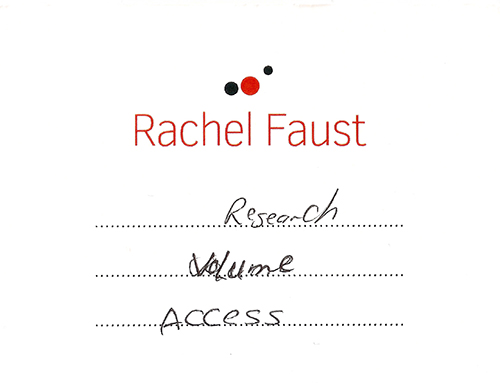 Rachel Faust
Research
Volume
Access